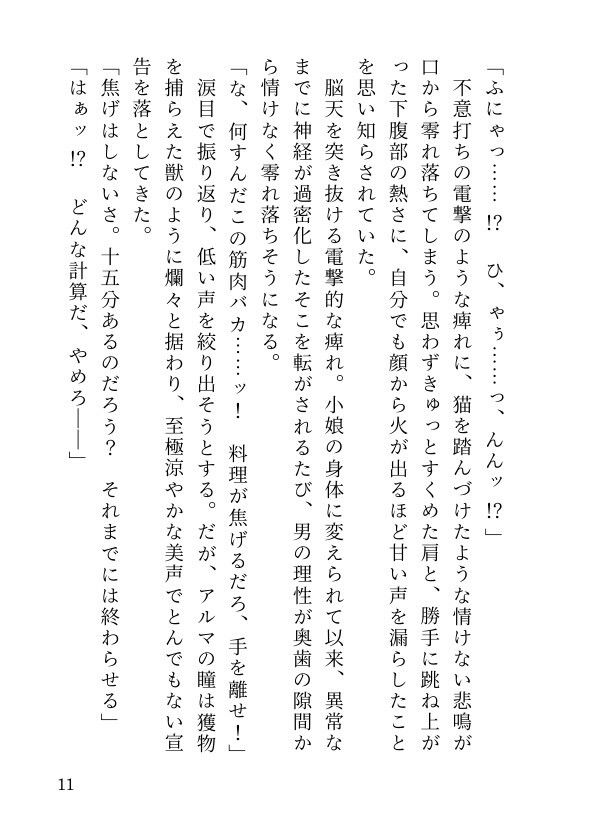 「ふにゃっ……!?　ひ、ゃぅ……っ、んんッ!?」
　不意打ちの電撃のような痺れに、猫を踏んづけたような情けない悲鳴が
口から零れ落ちてしまう。思わずきゅっとすくめた肩と、勝手に跳ね上が
った下腹部の熱さに、自分でも顔から火が出るほど甘い声を漏らしたこと
を思い知らされていた。
　脳天を突き抜ける電撃的な痺れ。小娘の身体に変えられて以来、異常な
までに神経が過密化したそこを転がされるたび、男の理性が奥歯の隙間か
ら情けなく零れ落ちそうになる。
「な、何すんだこの筋肉バカ……ッ！　料理が焦げるだろ、手を離せ！」
　涙目で振り返り、低い声を絞り出そうとする。だが、アルマの瞳は獲物
を捕らえた獣のように爛々と据わり、至極涼やかな美声でとんでもない宣
告を落としてきた。
「焦げはしないさ。十五分あるのだろう？　それまでには終わらせる」
「はぁッ!?　どんな計算だ、やめろ――」
11